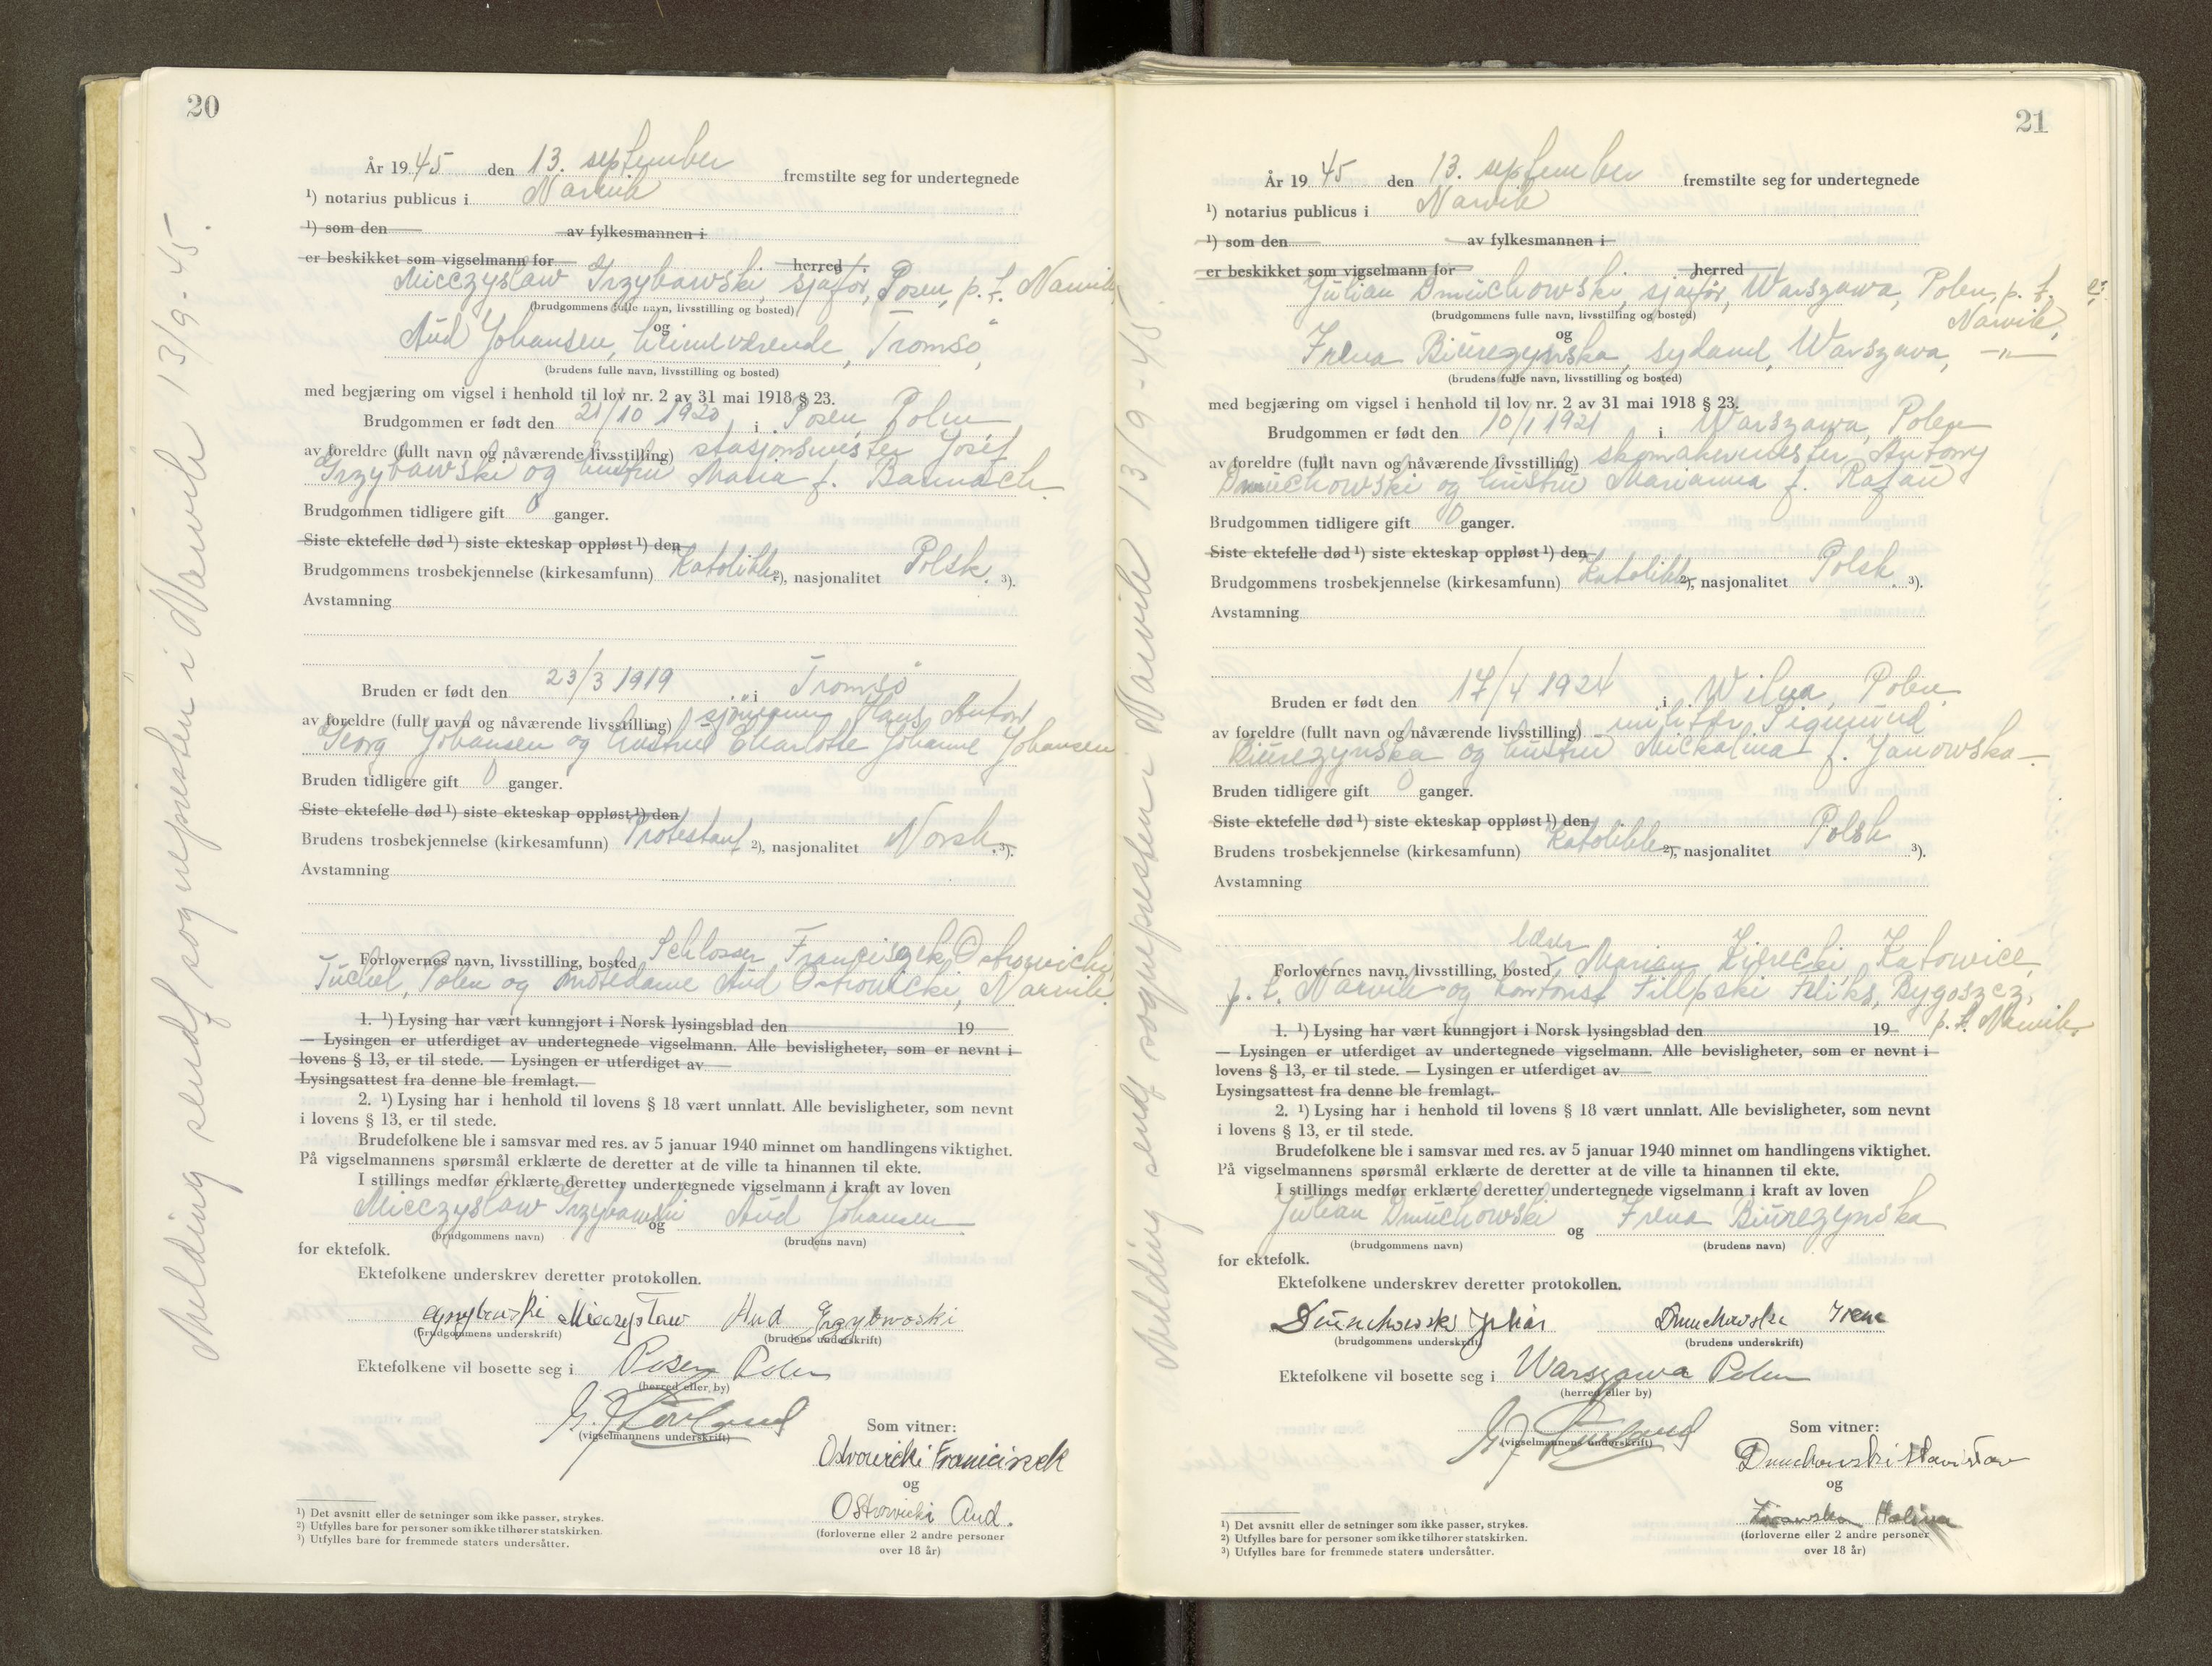 20
År 1945 den 13. september fremstilte seg for undertegnede
¹) notarius publicus i Narvik
¹) som den av fylkesmannen i
er beskikket som vigselmann for herred
Mieczyslaw Grzybowski, sjafør, Posen, p. t. Narvik
(brudgommens fulle navn, livsstilling og bosted)
og
Aud Johansen, heimeværende, Tromsö,
(brudens fulle navn, livsstilling og bosted)
med begjæring om vigsel i henhold til lov nr. 2 av 31 mai 1918 § 23.
Brudgommen er født den 21/10 1920 i Posen, Polen
av foreldre (fullt navn og nåværende livsstilling) stasjonsmester Josef
Grzybowski og hustru Maria f. Bannach.
Brudgommen tidligere gift 0 ganger.
Siste ektefelle død ¹) siste ekteskap oppløst ¹) den
Brudgommens trosbekjennelse (kirkesamfunn) Katolikk ²), nasjonalitet Polsk. ³).
Avstamning
Bruden er født den 23/3 1919 i Tromsö
av foreldre (fullt navn og nåværende livsstilling) sjömann Hans Anton
Georg Johansen og hustru Charlotte Johanne Johansen
Bruden tidligere gift 0 ganger.
Siste ektefelle død ¹) siste ekteskap oppløst ¹) den
Brudens trosbekjennelse (kirkesamfunn) Protestant ²), nasjonalitet Norsk. ³).
Avstamning
Forlovernes navn, livsstilling, bosted Schlosser Franciszek Ostrowicki
Tuchel, Polen og Aud Ostrowicki, Narvik.
1. ¹) Lysing har vært kunngjort i Norsk lysingsblad den 19
— Lysingen er utferdiget av undertegnede vigselmann. Alle bevisligheter, som er nevnt i
lovens § 13, er til stede. — Lysingen er utferdiget av
Lysingsattest fra denne ble fremlagt.
2. ¹) Lysing har i henhold til lovens § 18 vært unnlatt. Alle bevisligheter, som nevnt
i lovens § 13, er til stede.
Brudefolkene ble i samsvar med res. av 5 januar 1940 minnet om handlingens viktighet.
På vigselmannens spørsmål erklærte de deretter at de ville ta hinannen til ekte.
I stillings medfør erklærte deretter undertegnede vigselmann i kraft av loven
Mieczyslaw Grzybowski og Aud Johansen
(brudgommens navn) (brudens navn)
for ektefolk.
Ektefolkene underskrev deretter protokollen.
Grzybowski Mieczysław Aud Grzybowski
(brudgommens underskrift) (brudens underskrift)
Ektefolkene vil bosette seg i Posen Polen
(herred eller by)
(vigselmannens underskrift)
Som vitner:
Ostrowicki Franciszek
og
Ostrowicki Aud.
(forloverne eller 2 andre personer
over 18 år)
¹) Det avsnitt eller de setninger som ikke passer, strykes.
²) Utfylles bare for personer som ikke tilhører statskirken.
³) Utfylles bare for fremmede staters undersåtter.
Melding sendt sognepresten i Narvik 13/9-45.
21
År 1945 den 13. september fremstilte seg for undertegnede
¹) notarius publicus i Narvik
¹) som den av fylkesmannen i
er beskikket som vigselmann for herred
Julian Dmuchowski, sjafør, Warszawa, Polen, p. t.
Narvik,
(brudgommens fulle navn, livsstilling og bosted)
og
Irena Biurezynska, sydame, Warszava, —"—
(brudens fulle navn, livsstilling og bosted)
med begjæring om vigsel i henhold til lov nr. 2 av 31 mai 1918 § 23.
Brudgommen er født den 10/1 1921 i Warszawa, Polen
av foreldre (fullt navn og nåværende livsstilling) skomakermester Antony
Dmuchowski og hustru Marianna f. Rafau
Brudgommen tidligere gift 0 ganger.
Siste ektefelle død ¹) siste ekteskap oppløst ¹) den
Brudgommens trosbekjennelse (kirkesamfunn) Katolikk ²), nasjonalitet Polsk. ³).
Avstamning
Bruden er født den 17/4 1924 i Wilna, Polen,
av foreldre (fullt navn og nåværende livsstilling) militær Sigmund
Biurezynska og hustru Mickalina f. Janowska.
Bruden tidligere gift 0 ganger.
Siste ektefelle død ¹) siste ekteskap oppløst ¹) den
Brudens trosbekjennelse (kirkesamfunn) Katolikk ²), nasjonalitet Polsk ³).
Avstamning
Forlovernes navn, livsstilling, bosted, lærer Marian Katowice,
p. t. Narvik og kontorist Fillpski Feliks, Bygoszcz,
p. t. Narvik.
1. ¹) Lysing har vært kunngjort i Norsk lysingsblad den 19
— Lysingen er utferdiget av undertegnede vigselmann. Alle bevisligheter, som er nevnt i
lovens § 13, er til stede. — Lysingen er utferdiget av
Lysingsattest fra denne ble fremlagt.
2. ¹) Lysing har i henhold til lovens § 18 vært unnlatt. Alle bevisligheter, som nevnt
i lovens § 13, er til stede.
Brudefolkene ble i samsvar med res. av 5 januar 1940 minnet om handlingens viktighet.
På vigselmannens spørsmål erklærte de deretter at de ville ta hinannen til ekte.
I stillings medfør erklærte deretter undertegnede vigselmann i kraft av loven
Julian Dmuchowski og Irena Biurezynska
(brudgommens navn) (brudens navn)
for ektefolk.
Ektefolkene underskrev deretter protokollen.
Dmuchowski Julian Dmuchowska Irena
(brudgommens underskrift) (brudens underskrift)
Ektefolkene vil bosette seg i Warszawa Polen
(herred eller by)
(vigselmannens underskrift)
Som vitner:
Dmuchowski Stanisław
og
Halina
(forloverne eller 2 andre personer
over 18 år)
¹) Det avsnitt eller de setninger som ikke passer, strykes.
²) Utfylles bare for personer som ikke tilhører statskirken.
³) Utfylles bare for fremmede staters undersåtter.
Melding sendt sognepresten i Narvik 13/9-45.